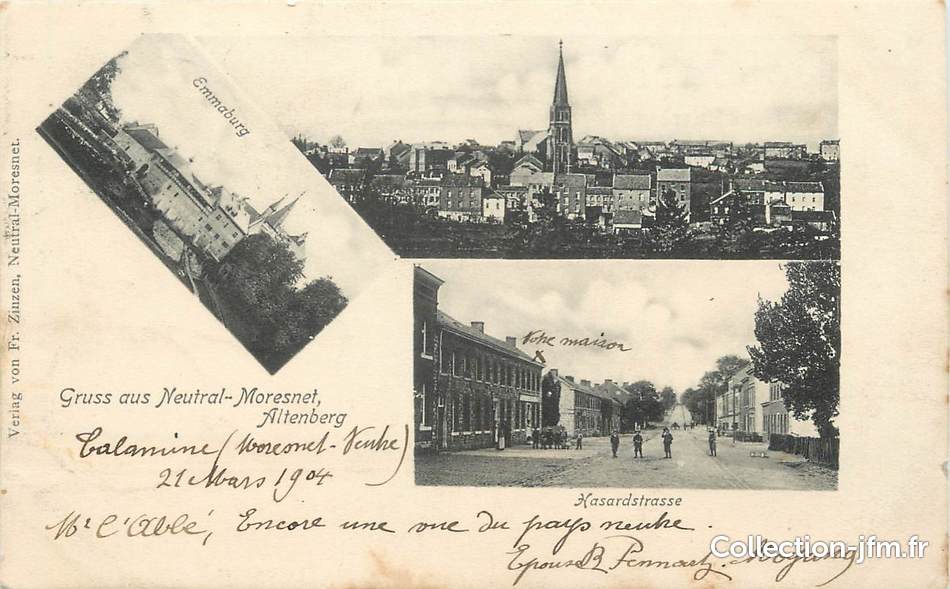 Verlag von Fr. Zinzen, Neutral-Moresnet.
Emmaburg
Notre maison
Gruss aus Neutral-Moresnet,
Altenberg
Hasardstrasse
Calamine (Moresnet-Neutre)
21 Mars 1904
Mr l'Abbé, Encore une vue du pays neutre.
Epouse B Pennartz
Collection-jfm.fr